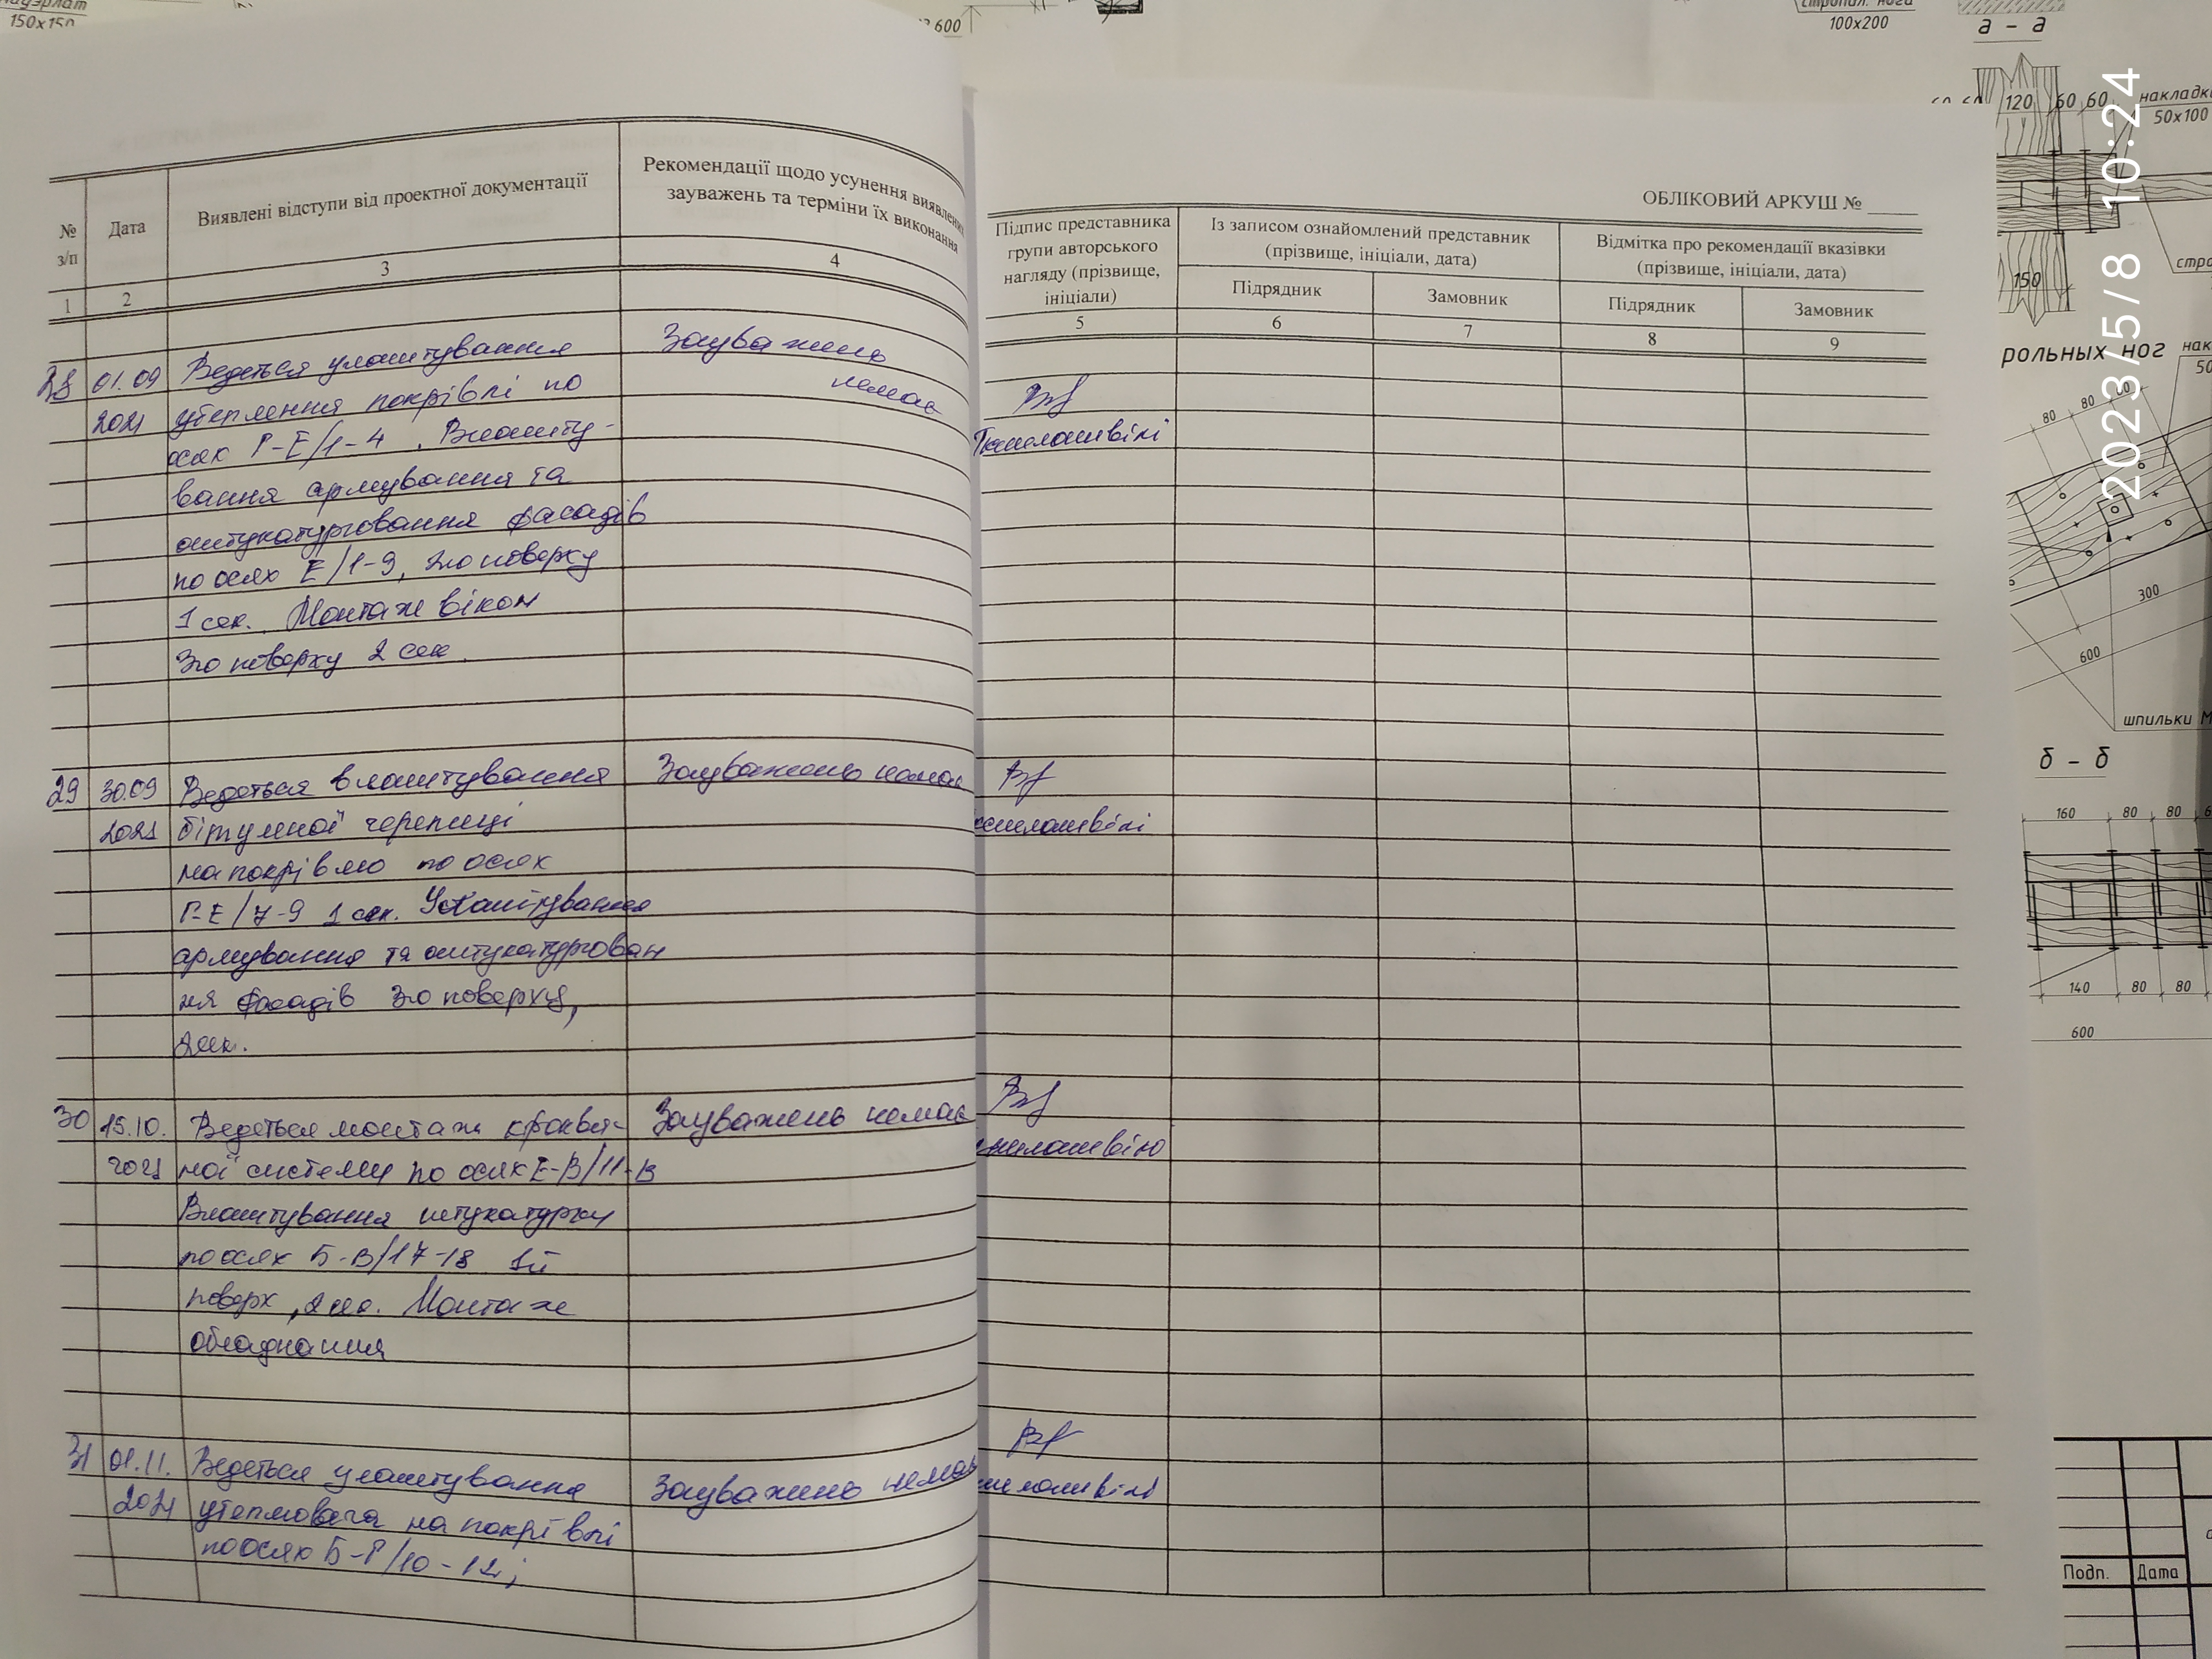 150х150
600
стропил. нога
100х200
а - а
120
60 60
накладки
50х100
150
2023/5/8 10:24
рольных ног
80
80
300
600
шпильки М
б - б
160
80
80
140
80
80
600
Подп.
Дата
№ з/п
Дата
Виявлені відступи від проектної документації
Рекомендації щодо усунення виявлених
зауважень та терміни їх виконання
1
2
3
4
28 01.09 Ведеться улаштування Зауважень
2021 утеплення покрівлі по немає
осях Г-Е/1-4. Влашту-
вання армування та
оштукатурювання фасадів
по осях Е/1-9, 2го поверху
1 сек. Монтаж вікон
3го поверху 2 сек.
29 30.09 Ведеться влаштування Зауважень немає
2021 бітумної черепиці
на покрівлю по осях
Г-Е/7-9 1 сек. Улаштування
армування та оштукатурюван
ня фасадів 3го поверху,
2сек.
30 15.10. Ведеться монтаж кроквя- Зауважень немає
2021 ної системи по осях Е-В/11-В
Влаштування штукатурки
по осях Б-В/17-18 1й
поверх, 2 сек. Монтаж
обладнання
31 01.11. Ведеться улаштування Зауважень немає
2021 утеплювача на покрівлі
по осях Б-Г/10-12;
ОБЛІКОВИЙ АРКУШ №
Підпис представника
групи авторського
нагляду (прізвище,
ініціали)
Із записом ознайомлений представник
(прізвище, ініціали, дата)
Відмітка про рекомендації вказівки
(прізвище, ініціали, дата)
Підрядник
Замовник
Підрядник
Замовник
5
6
7
8
9